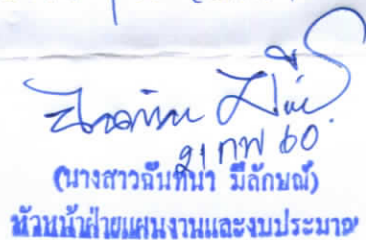 21 กพ 60
(นางสาวฉันทนา มีลักษณ์)
หัวหน้าฝ่ายแผนงานและงบประมาณ